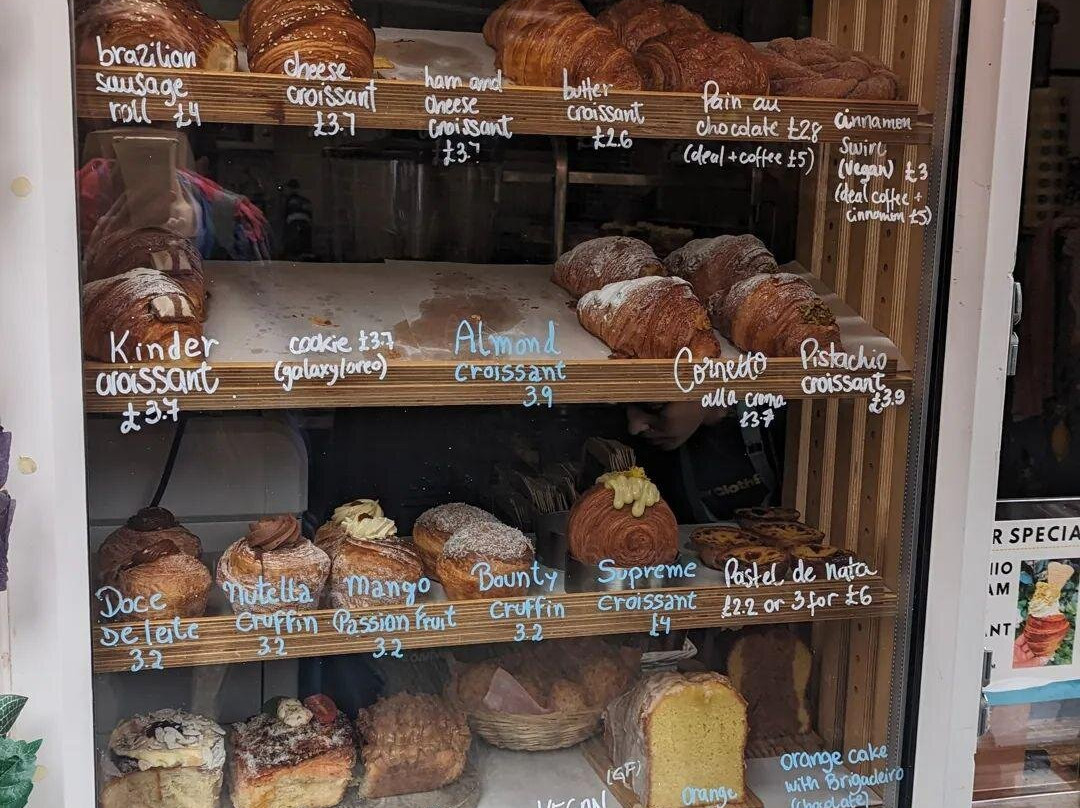 brazilian
sausage
roll £4
cheese
croissant
£3.7
ham and
cheese
croissant
£3.7
butter
croissant
£2.6
Pain au
chocolate £2.8
(deal + coffee £5)
cinnamon
swirl
(vegan) £3
(deal coffee +
cinnamon £5)
Kinder
croissant
£3.7
cookie £3.7
(galaxy/oreo)
Almond
croissant
3.9
Cornetto
alla crema
£3.7
Pistachio
croissant
£3.9
Doce
De leite
3.2
Nutella
Cruffin
3.2
Mango
Passion Fruit
3.2
Bounty
Cruffin
3.2
Supreme
croissant
£4
Pastel de nata
£2.2 or 3 for £6
(GF)
VEGAN
orange
orange cake
with Brigadeiro
(chocolate)
R SPECIA
NIO
AM
NT